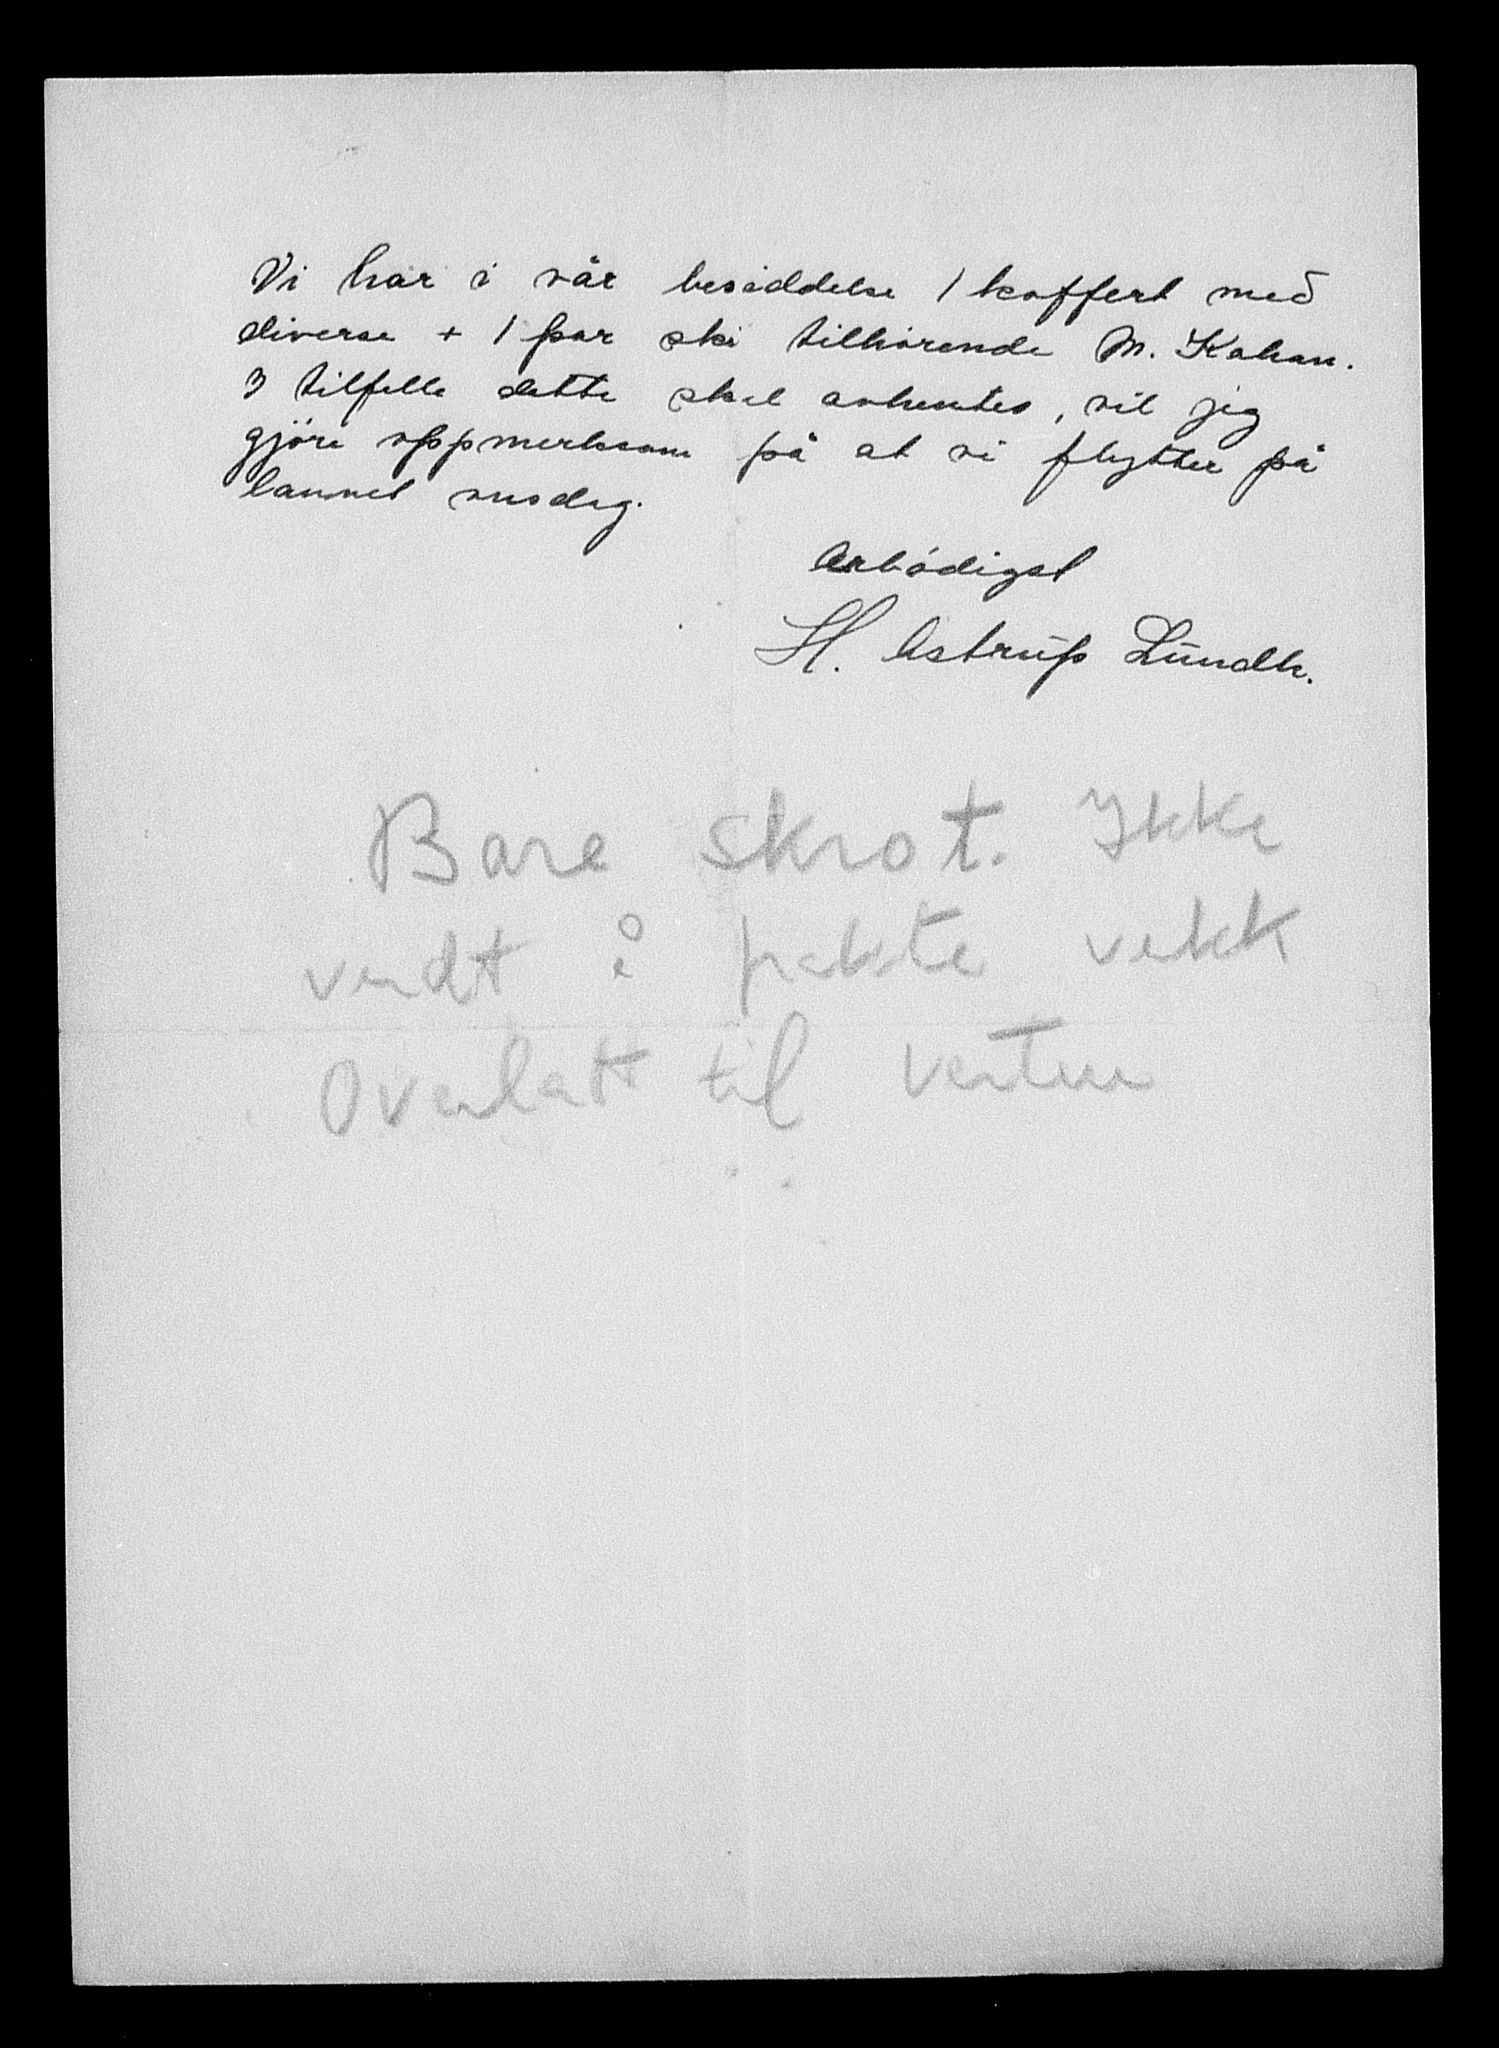 Vi har i vår besiddelse 1 koffert med
diverse + 1 par ski tilhörende M. Kahan.
I tilfelle dette skal avhentes, vil jeg
gjöre oppmerksom på at vi flytter på
lannet onsdag.
Ærbödigst
H. Astrup Lundh.
Bare skrot. Ikke
verdt å pakke vekk
Overlatt til verten